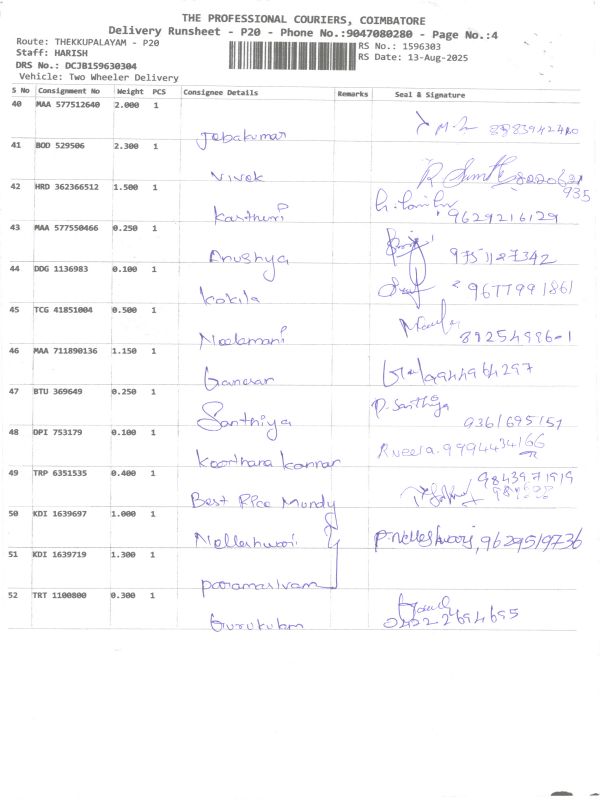 THE PROFESSIONAL COURIERS, COIMBATORE
Delivery Runsheet - P20 - Phone No.:9047080280 - Page No.:4
Route: THEKKUPALAYAM - P20
RS No.: 1596303
Staff: HARISH
RS Date: 13-Aug-2025
DRS No.: DCJB159630304
Vehicle: Two Wheeler Delivery
S No Consignment No Weight PCS Consignee Details Remarks Seal & Signature
40 MAA 577512640 2.000 1
Jebakumar
41 BOD 529506 2.300 1
Vivek
42 HRD 362366512 1.500 1
Kasthuri 9629216129
43 MAA 577550466 0.250 1
Anushya 9751127342
44 DDG 1136983 0.100 1
kokila 9677991861
45 TCG 41851004 0.500 1
Neelamani
46 MAA 711890136 1.150 1
Ganesan 9944964297
47 BTU 369649 0.250 1
P. Santhiya
Santhiya 9361695151
48 DPI 753179 0.100 1
9994434166
49 TRP 6351535 0.400 1
9843971919
Best Rice Mundy
50 KDI 1639697 1.000 1
Nelleshwari P. Nelleshwari, 9629519736
51 KDI 1639719 1.300 1
paramasivam
52 TRT 1100800 0.300 1
Gurukulam 0422 2694695